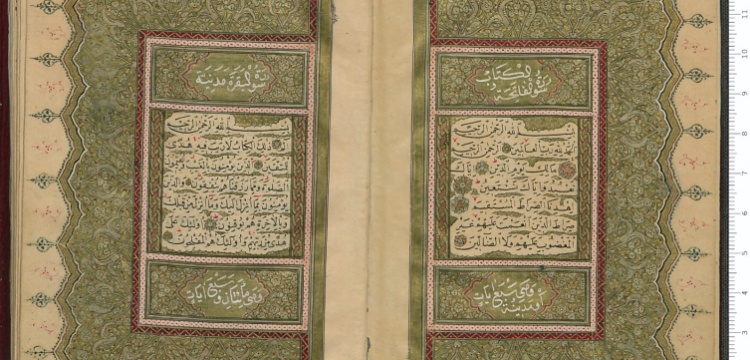 سورة فاتحة
الكتاب
بسم الله الرحمن الرحيم
الحمد لله رب العالمين الرحمن الرحيم
مالك يوم الدين اياك
نعبد واياك نستعين
اهدنا الصراط المستقيم
صراط الذين انعمت عليهم غير
المغضوب عليهم ولا الضالين
وهي سبع ايات
سورة البقرة مدنية
بسم الله الرحمن الرحيم
الم ذلك الكتاب لا ريب فيه هدى
للمتقين الذين يؤمنون بالغيب ويقيمون
الصلوة ومما رزقناهم ينفقون والذين
يؤمنون بما انزل اليك وما انزل من قبلك
وبالاخرة هم يوقنون اولئك على
هدى من ربهم واولئك هم المفلحون
وهي مائتان وسبع ايات
11
10
9
8
7
6
5
4
3